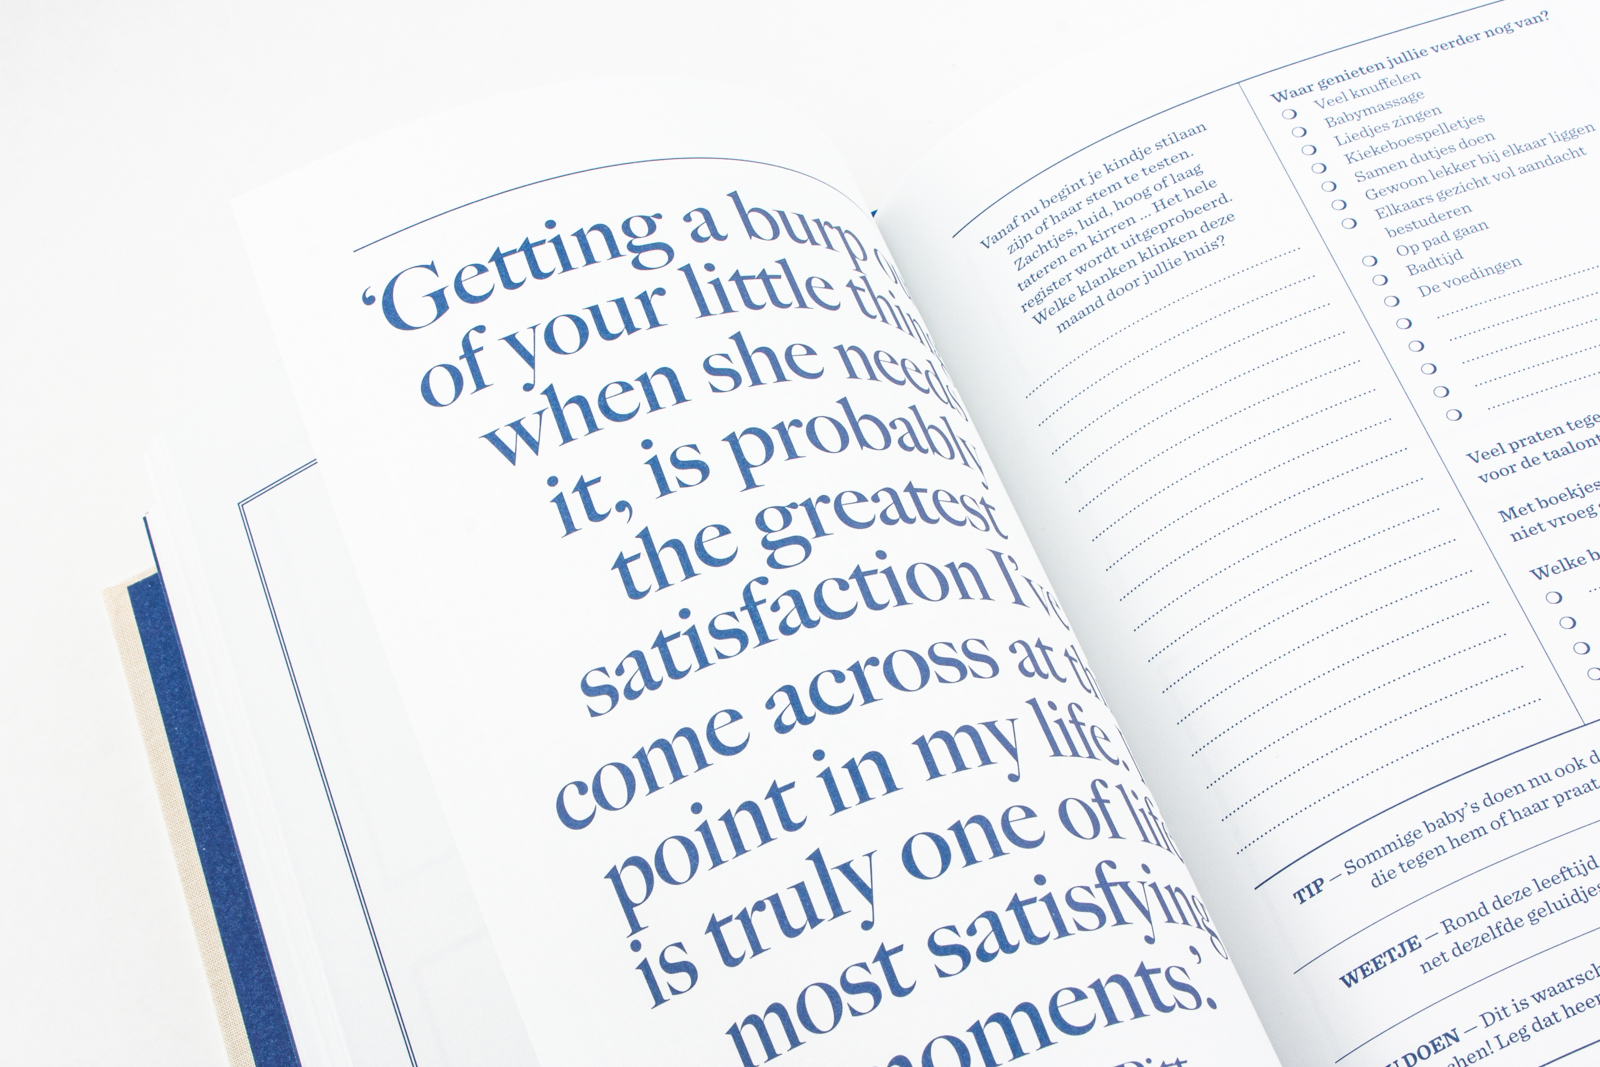 ‘Getting a burp
of your little
when she needs
it, is probably
the greatest
satisfaction I’ve
come across at
point in my life.
is truly one of
most satisfying
moments’.
Vanaf nu begint je kindje stilaan
zijn of haar stem te testen.
Zachtjes, luid, hoog of laag
tateren en kirren ... Het hele
register wordt uitgeprobeerd.
Welke klanken klinken deze
maand door jullie huis?
Waar genieten jullie verder nog van?
Veel knuffelen
Babymassage
Liedjes zingen
Kiekeboespelletjes
Samen dutjes doen
Gewoon lekker bij elkaar liggen
Elkaars gezicht vol aandacht
bestuderen
Op pad gaan
Badtijd
De voedingen
Veel praten
voor de
Met boekjes
niet vroeg
Welke
TIP – Sommige baby’s doen nu ook
die tegen hem of haar praat
WEETJE – Rond deze leeftijd
net dezelfde geluidjes
DOEN – Dit is
Leg dat